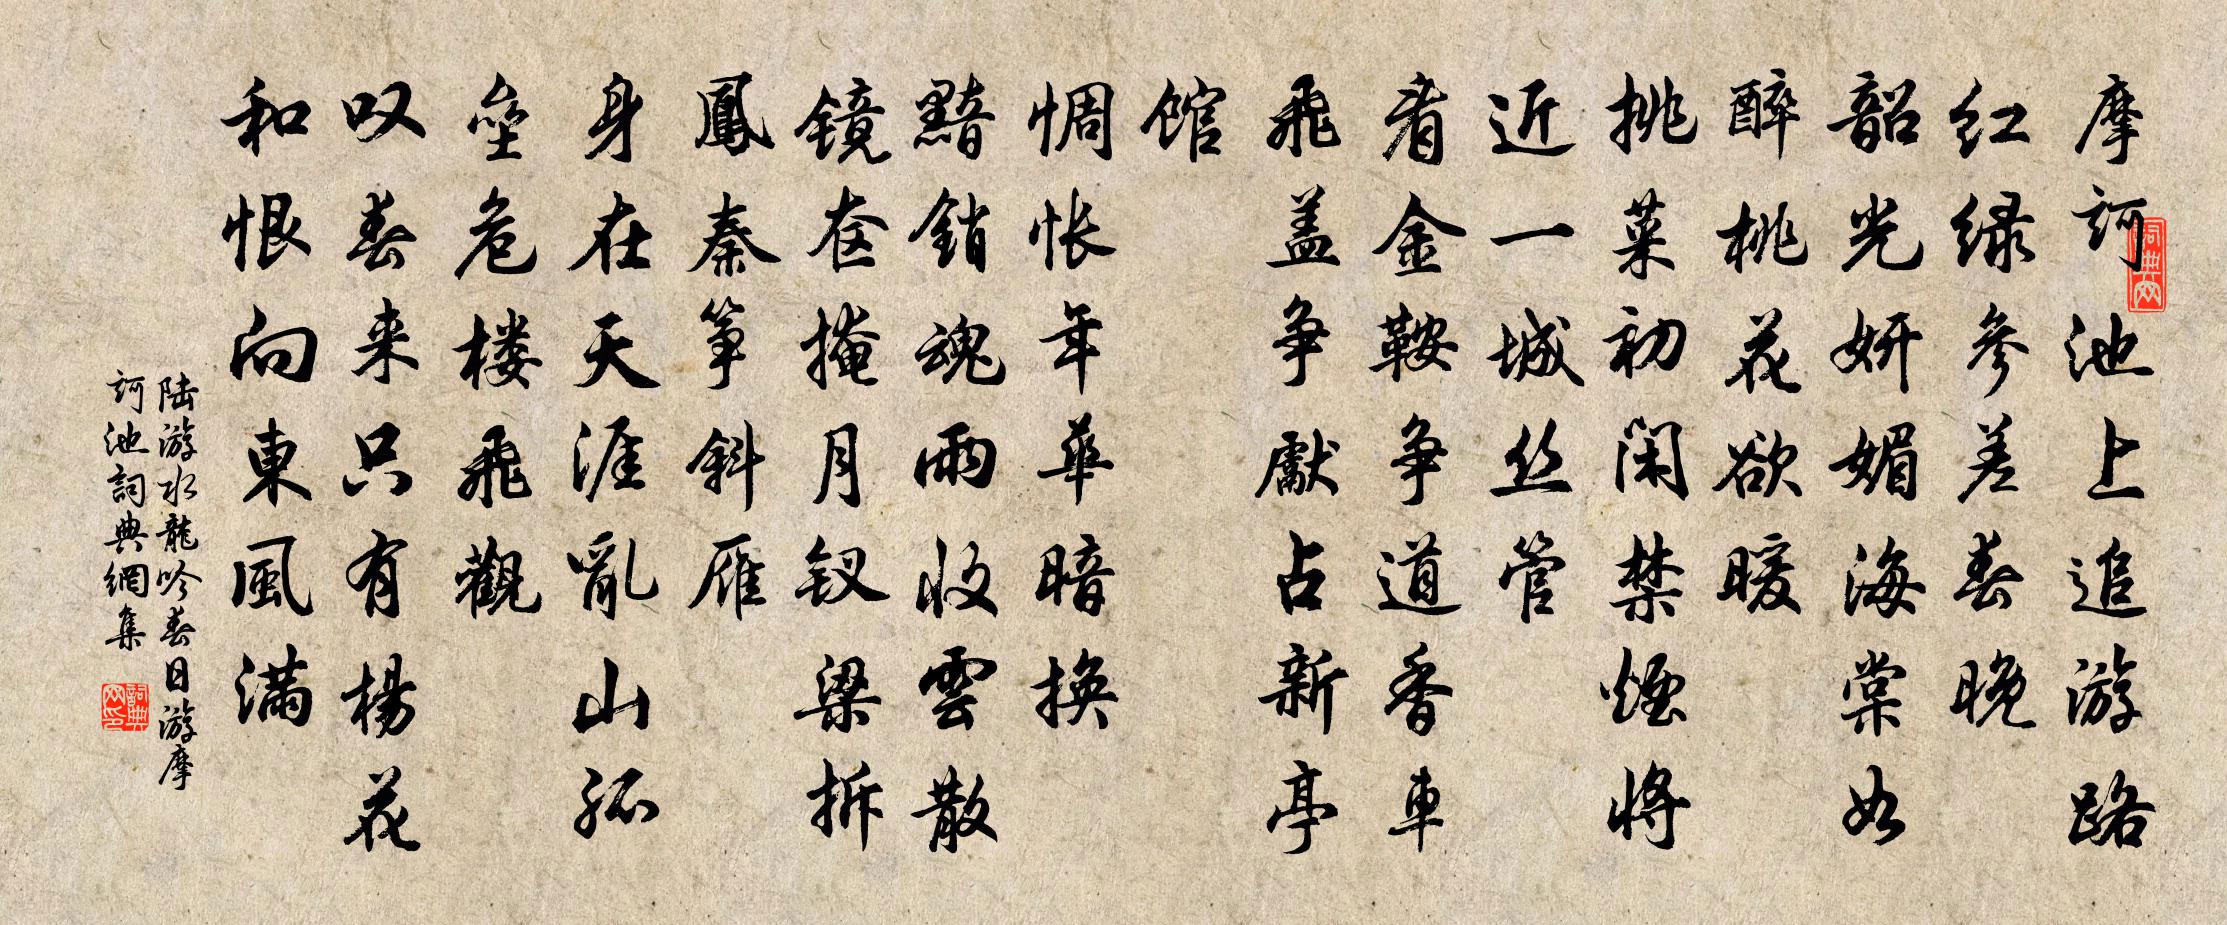 摩訶池上追游路
红绿参差春晚
韶光妍媚海棠如
醉桃花欲暖
挑菜初闲禁烟将
近一城丝管
看金鞍争道香车
飞盖争献占新亭
馆
惆怅年华暗换
黯銷魂雨收雲散
镜奁掩月钗梁拆
鳳秦筝斜雁
身在天涯亂山孤
壘危楼飛觀
叹春来只有楊花
和恨向東風满
陆游水龍吟春日游摩
訶池詞典網集
詞典网
詞典网印